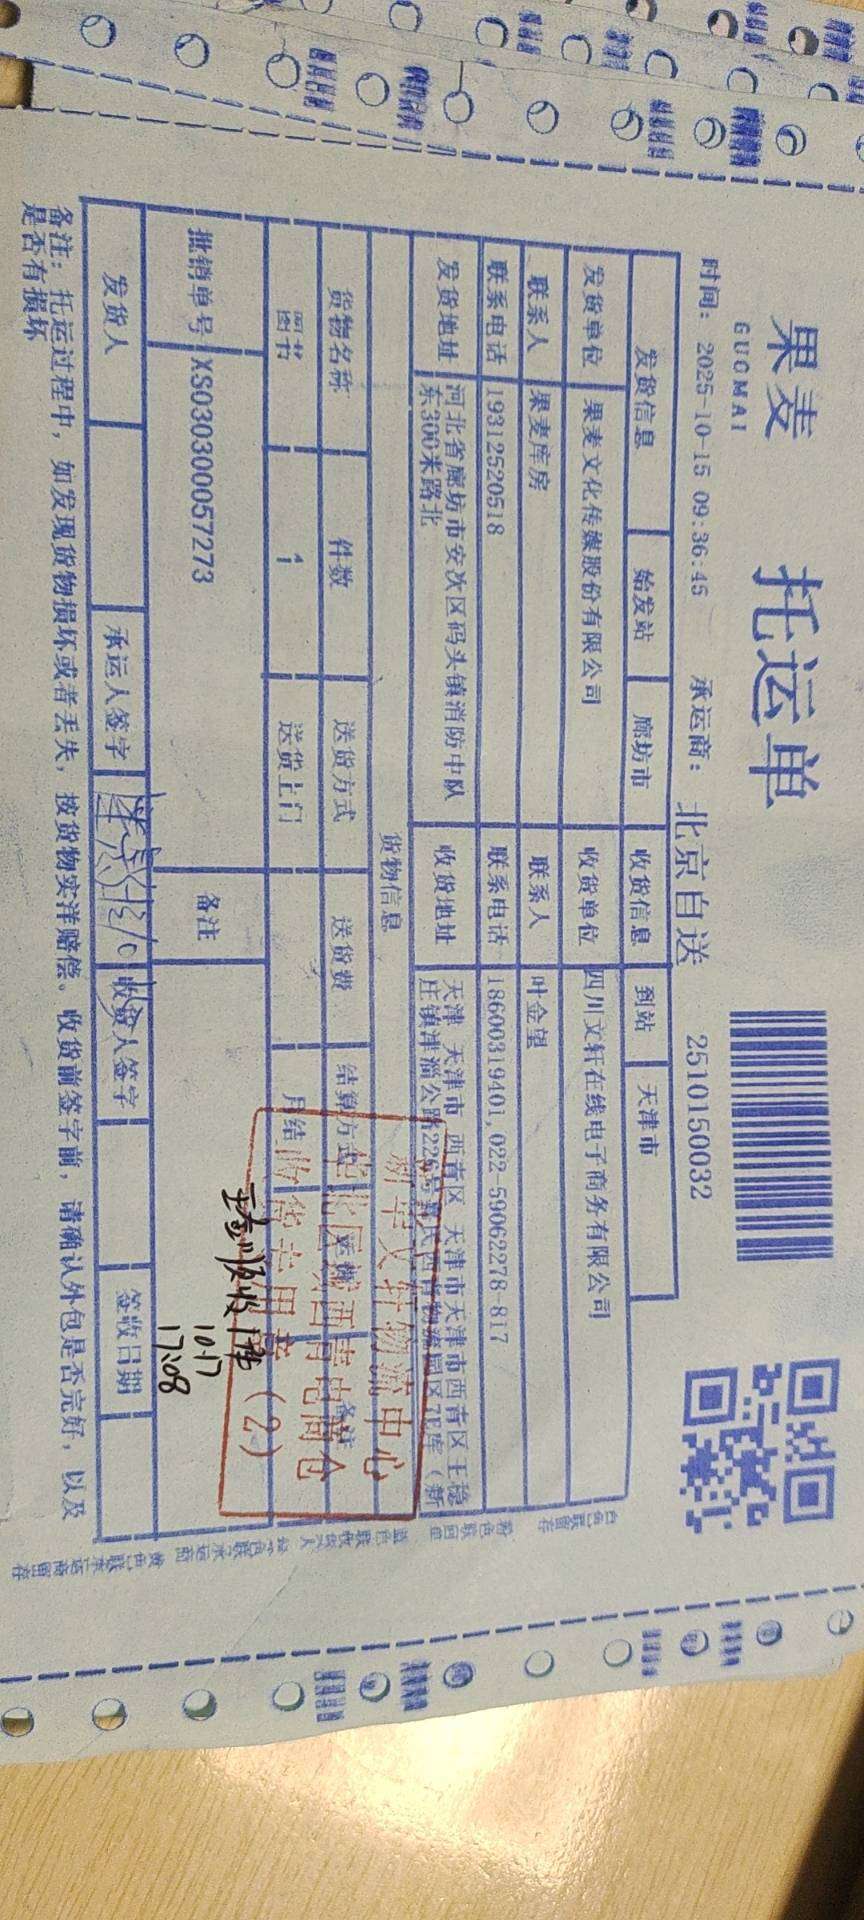 果麦
GUOMAI
托运单
时间: 2025-10-15 09:36:45 承运商: 北京自送 2510150032
发货信息 始发站 廊坊市 收货信息 到站 天津市
发货单位 果麦文化传媒股份有限公司 收货单位 四川文轩在线电子商务有限公司
联系人 果麦库房 联系人 叶金望
联系电话 19312520518 联系电话 18600319401,022-59062278-817
发货地址 河北省廊坊市安次区码头镇消防中队东300米路北 收货地址 天津 天津市 西青区 天津市天津市西青区王稳庄镇津淄公路226号 西青物流园区7E库(新
货物信息
货物名称 件数 送货方式 送货费 结算方式 备注
图书 1 送货上门 月结
批销单号 XS030300057273 备注
发货人 承运人签字 收货人签字 签收日期
备注: 托运过程中, 如发现货物损坏或者丢失, 按货物实洋赔偿。收货前签字前, 请确认外包是否完好, 以及
是否有损坏
新华文轩物流中心
华北区域西青电商仓
收货专用章(2)
10.17
17:08
白色联留存 粉色联回单 蓝色联收货人